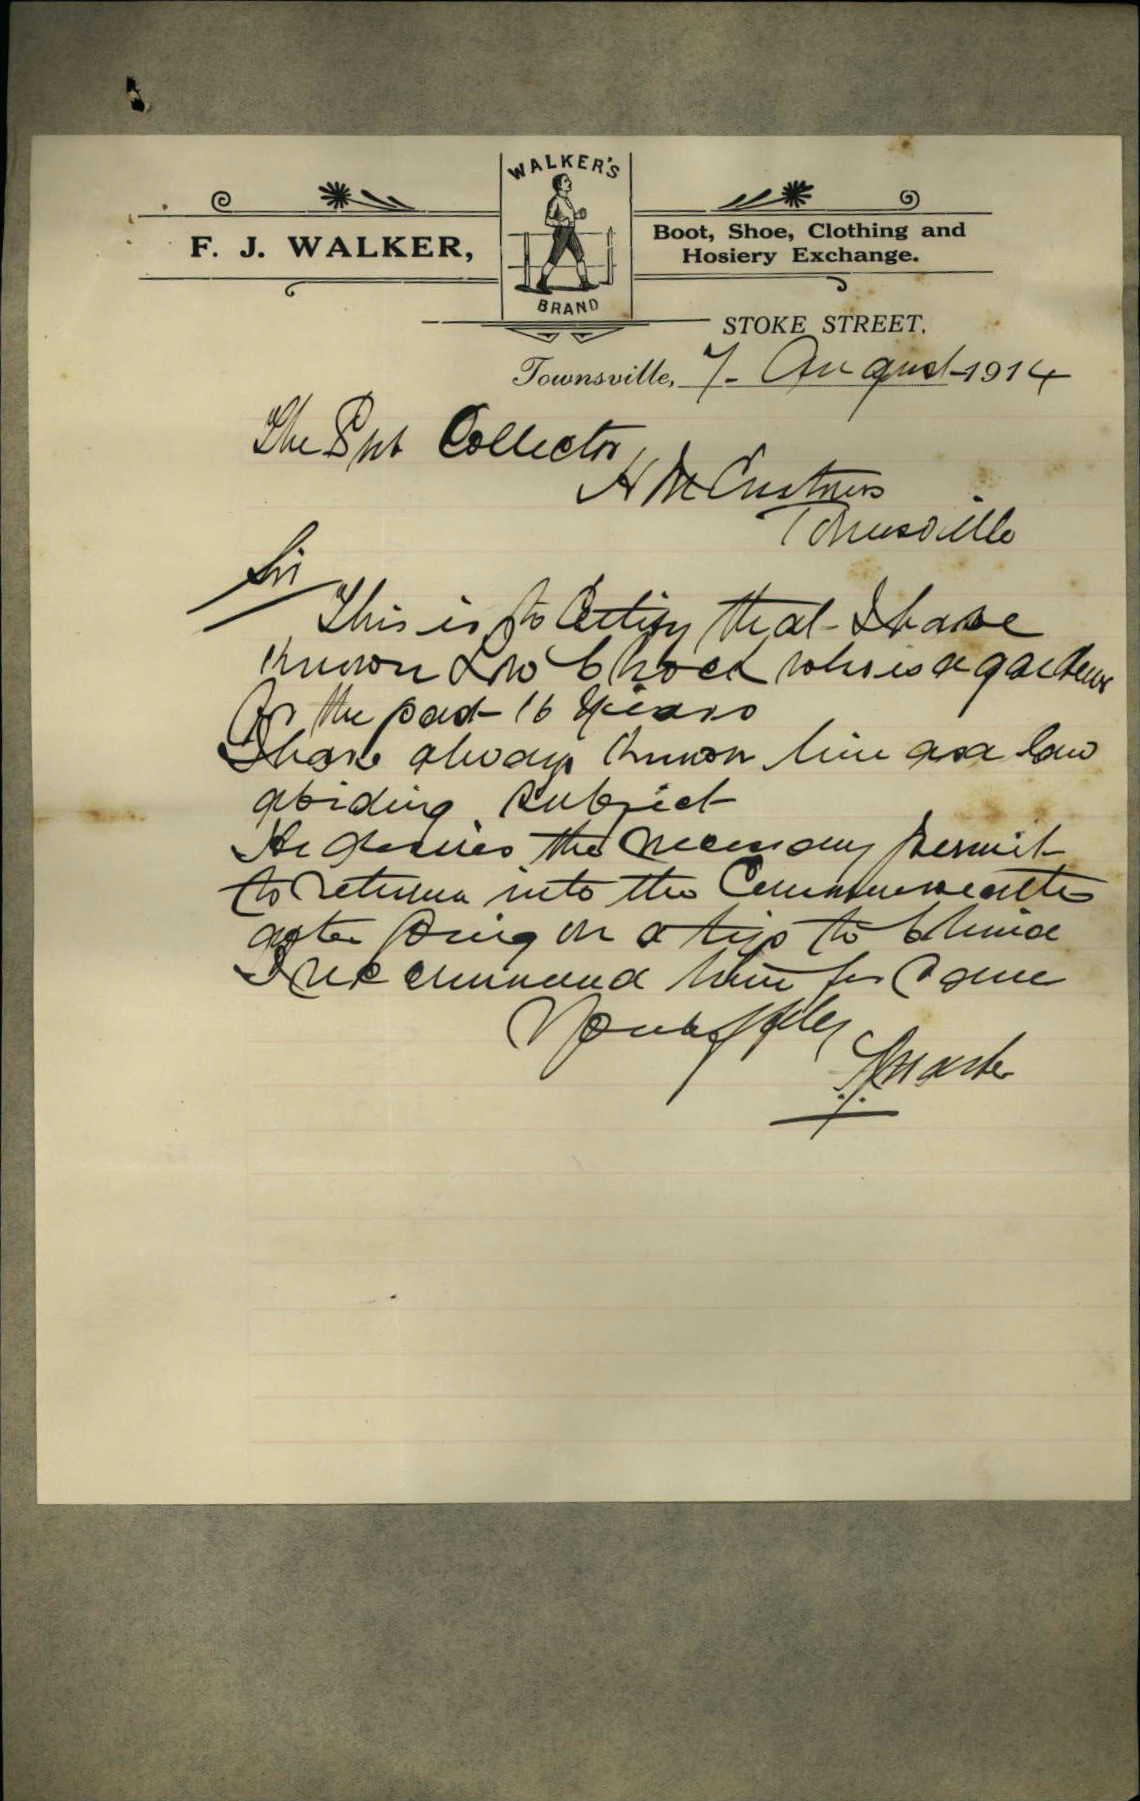 WALKER'S
BRAND
F. J. WALKER,
Boot, Shoe, Clothing and
Hosiery Exchange.
STOKE STREET,
Townsville, 7. August 1914
The Sub Collector
H M Customs
Townsville
Sir
This is to Certify that I have
known Low Chock who is a gardener
for the past 16 Years
I have always known him as a law
abiding subject
He desires the necessary permit
to return into the Commonwealth
after going on a trip to China
I recommend him for same
Yours ffly